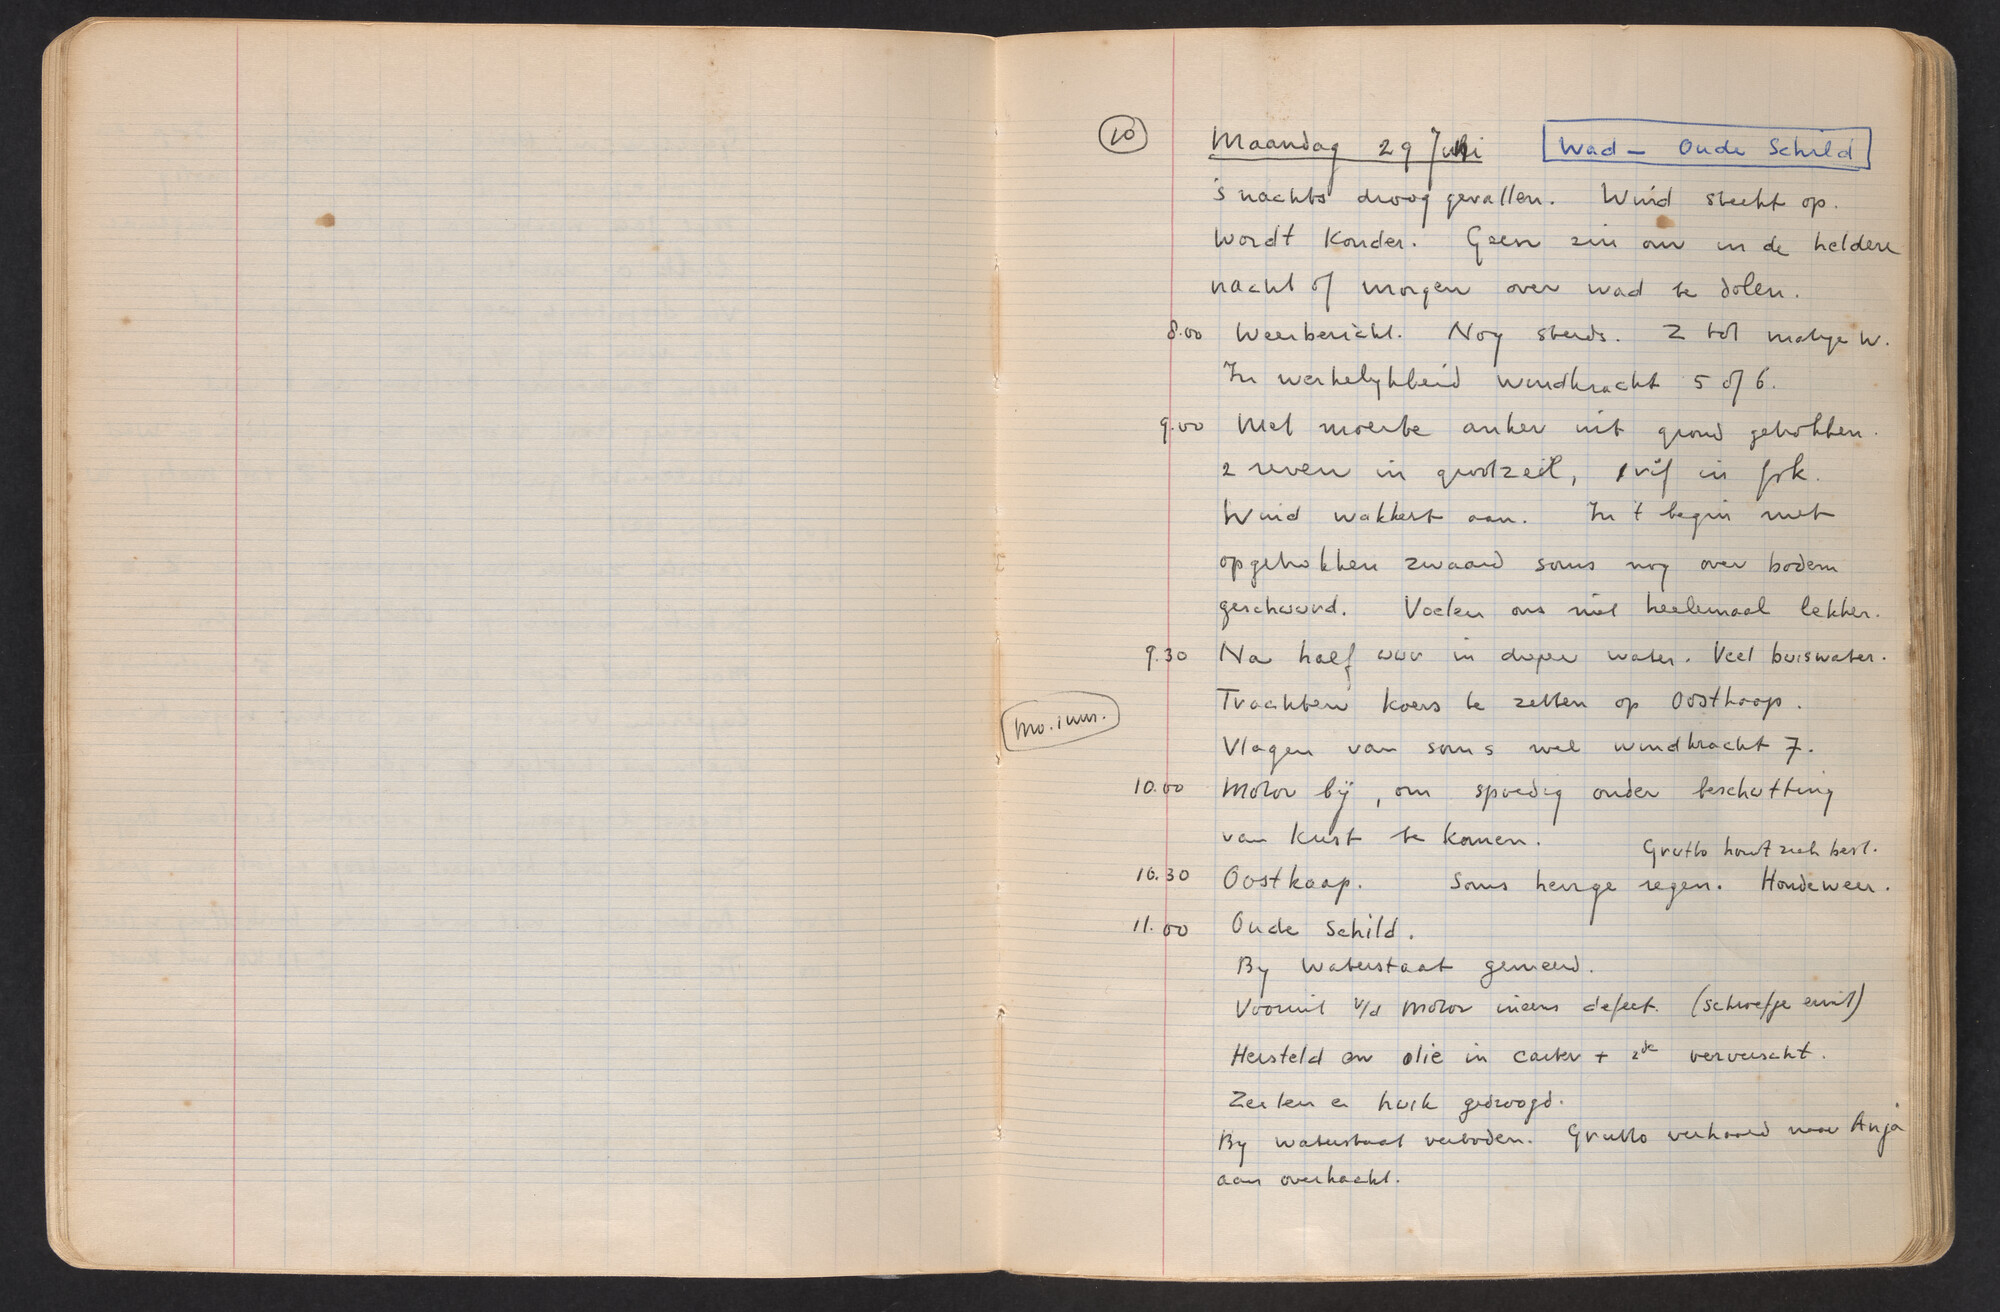 10
Maandag 29 Juni
Wad - Oude Schild
's nachts droog gevallen. Wind steekt op.
Wordt Kouder. Geen zin om in de heldere
nacht of morgen over wad te dolen.
8.00 Weerbericht. Nog steeds. Z tot matige W.
In werkelykheid windkracht 5 of 6.
9.00 Met moeite anker uit grond getrokken.
2 reven in grootzeil, 1 rif in fok.
Wind wakkert aan. In 't begin met
opgetrokken zwaard soms nog over bodem
geschuurd. Voelen ons niet heelemaal lekker.
9.30 Na half uur in dieper water. Veel buiswater.
Trachten koers te zetten op Oostkaap.
Vlagen van soms wel windkracht 7.
mo. 1 uur.
10.00 Motor bij, om spoedig onder beschutting
van Kust te komen.
Grutto houdt zich best.
10.30 Oostkaap. Soms hevige regen. Hondeweer.
11.00 Oude Schild.
By Waterstaat gemeerd.
Vooruit v/d motor ineens defect. (schroefje eruit)
Hersteld en olie in carter + ververscht.
Zeilen e huik gedroogd.
By waterstaat verboden. Grutto verhaald naar Anja
aan overkacht.